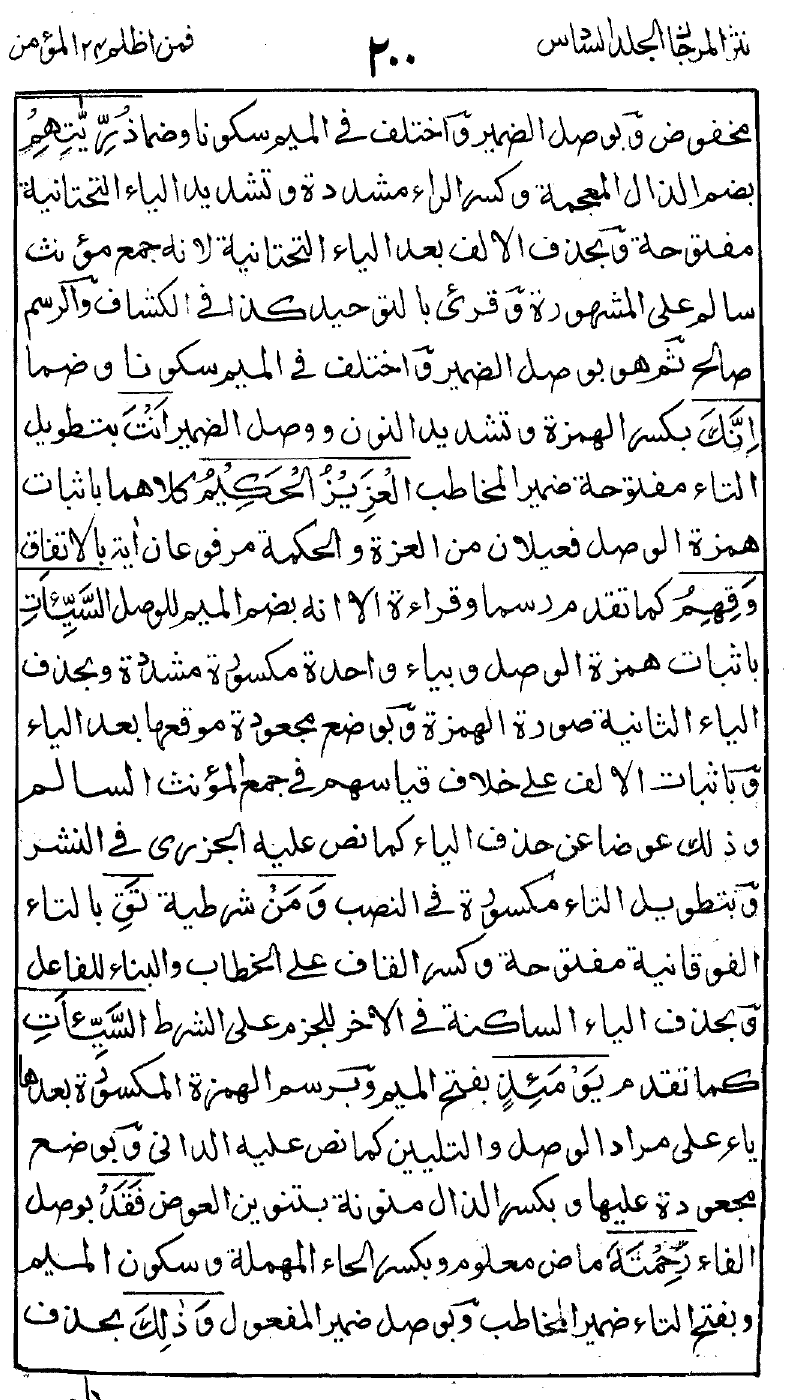 نثر المرجان الجلد السادس ٢٠٠ فمن اظلم ٢٤ المؤمن
مخفوض وَّبوصل الضمير وَّاختلف فى الميم سكونا وضما ذُرِّيّٰتِهِمْ
بضم الذال المعجمة وكسر الراء مشددة وتشديد الياء التحتانية
مفتوحة وَّبحذف الالف بعد الياء التحتانية لانه جمع مؤنث
سالم على المشهورة وَّقرئ بالتوحيد كذا فى الكشاف وَّالرسم
صالح ثم هو بوصل الضمير وَّاختلف فى الميم سكونا وضما
اِنَّكَ بكسر الهمزة وتشديد النون ووصل الضمير اَنْتَ بتطويل
التاء مفتوحة ضمير المخاطب الْعَزِيْزُ الْحَكِيْمُ كلاهما باثبات
همزة الوصل فعيلان من العزة والحكمة مرفوعان أية بالاتفاق
وَقِهِمُ كما تقدم رسما وقراءة الا انه بضم الميم للوصل السَّيِّئَاتِ
باثبات همزة الوصل وبياء واحدة مكسورة مشددة وبحذف
الياء الثانية صورة الهمزة وَّبوضع مجعودة موقعها بعد الياء
وَّباثبات الالف على خلاف قياسهم فى جمع المؤنث السالم
وذلك عوضا عن حذف الياء كما نص عليه الجزرى فى النشر
وَّبتطويل التاء مكسورة فى النصب وَمَنْ شرطية تَقِ بالتاء
الفوقانية مفتوحة وكسر القاف على الخطاب والبناء للفاعل
وَّبحذف الياء الساكنة فى الاخر للجزم على الشرط السَّيِّئَاتِ
كما تقدم يَوْمَئِذٍ بفتح الميم وَّبرسم الهمزة المكسورة بعدها
ياء على مراد الوصل والتليين كما نص عليه الدانى وَّبوضع
مجعودة عليها وبكسر الذال منونة بتنوين العوض فَقَدْ بوصل
الفاء رَحِمْتَهٗ ماض معلوم وبكسر الحاء المهملة وسكون الميم
وبفتح التاء ضمير المخاطب وَّبوصل ضمير المفعول وَذٰلِكَ بحذف